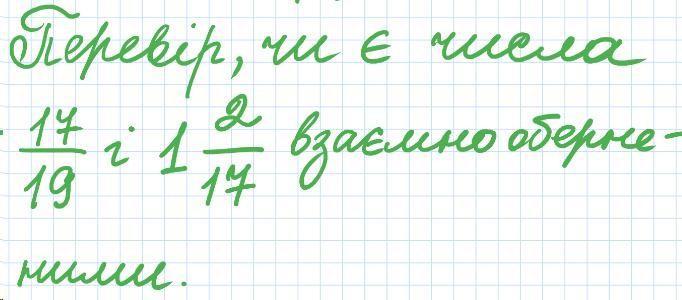 Перевір, чи є числа
17/19 і 1 2/17 взаємно оберне-
ними.